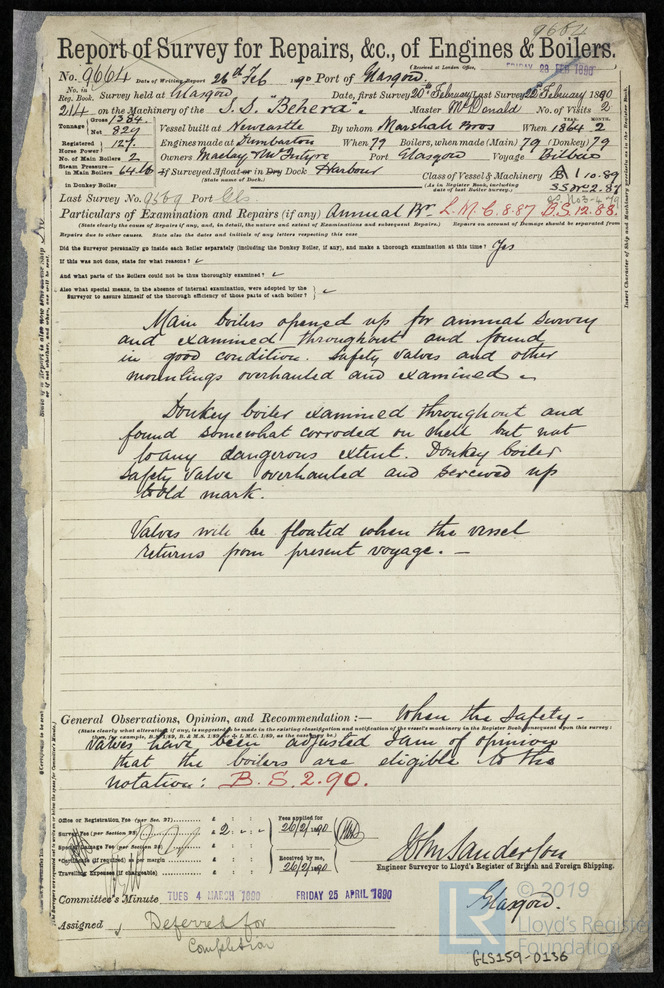 9664
Report of Survey for Repairs, &c., of Engines & Boilers.
(Received at London Office, FRIDAY 28 FEB 1890
No. 9664 Date of Writing Report 26th Feb 1890 Port of Glasgow.
No. in Reg. Book. Survey held at Glasgow Date, first Survey 20th February Last Survey 26 February 1890
214 on the Machinery of the S.S. "Behera". Master McDonald No. of Visits 2
Tonnage Gross 1384. Net 829 Vessel built at Newcastle By whom Marshall Bros When 1864 2
YEAR. MONTH.
Registered Horse Power 127. Engines made at Dumbarton When 79 Boilers, when made (Main) 79 (Donkey) 79
No. of Main Boilers 2 Owners Maclay & McIntyre Port Glasgow Voyage Bilbao
Steam Pressure— in Main Boilers 64 lb If Surveyed Afloat or in Dry Dock Harbour
(State name of Dock.)
Class of Vessel & Machinery A1 10.89
(As in Register Book, including date of last Boiler survey.) SS No 2.87
in Donkey Boiler
Last Survey No. 9569 Port Gls.
Particulars of Examination and Repairs (if any) Annual Br. L.M.C. 8.87 B.S. 12.88.
(State clearly the cause of Repairs if any, and, in detail, the nature and extent of Examinations and subsequent Repairs.) Repairs on account of Damage should be separated from
Repairs due to other causes. State also the dates and initials of any letters respecting this case
Did the Surveyor personally go inside each Boiler separately (including the Donkey Boiler, if any), and make a thorough examination at this time? Yes
If this was not done, state for what reasons?
And what parts of the Boilers could not be thus thoroughly examined?
Also what special means, in the absence of internal examination, were adopted by the
Surveyor to assure himself of the thorough efficiency of those parts of each boiler?
Main boilers opened up for annual survey
and examined throughout and found
in good condition. Safety valves and other
mountings overhauled and examined
Donkey boiler examined throughout and
found somewhat corroded on shell but not
to any dangerous extent. Donkey boiler
safety valve overhauled and screwed up
to old mark.
Valves will be floated when the vessel
returns from present voyage. —
General Observations, Opinion, and Recommendation :— When the safety-
(State clearly what alteration if any, is suggested to be made in the existing classification and notification of the vessel's machinery in the Register Book consequent upon this survey :
valves have been adjusted I am of opinion
that the boilers are eligible to the
notation: B.S. 2.90.
Office or Registration Fee (per Sec. 27)
Survey Fee (per Section 28) £ 2 : - : -
Special Damage Fee (per Section 28)
Certificate (if required) as per margin
Travelling Expenses (if chargeable)
Fees applied for 26/2/1890
Received by me, 26/2/1890
John Sanderson
Engineer Surveyor to Lloyd's Register of British and Foreign Shipping.
Committee's Minute TUES 4 MARCH 1890 FRIDAY 25 APRIL 1890
Glasgow.
Assigned Deferred for
Completion
© 2019
Lloyd's Register
Foundation
LR
GLS159-0136
Insert Character of Ship and Machinery precisely as in the Register Book.